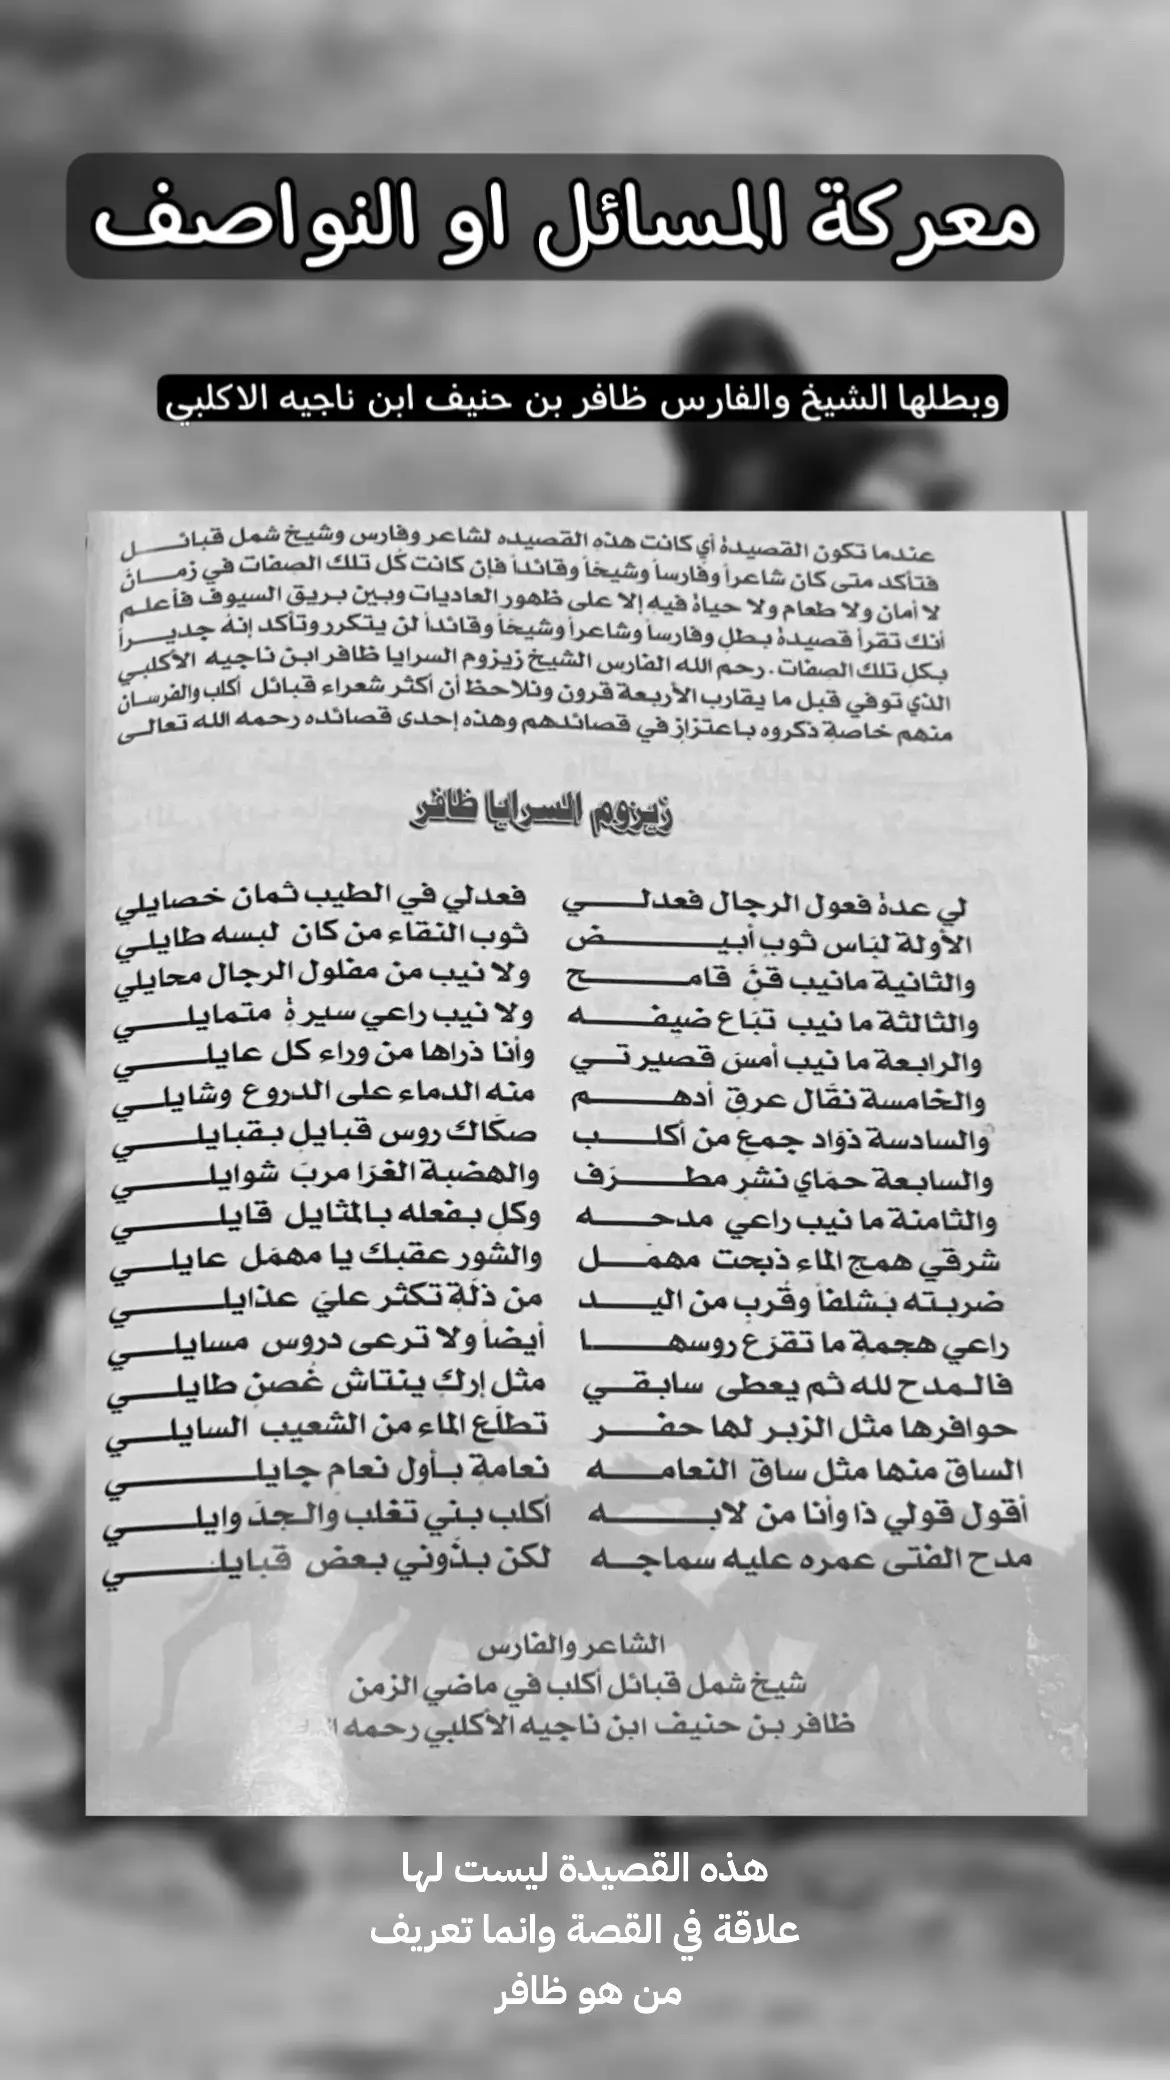 معركة المسائل او النواصف
وبطلها الشيخ والفارس ظافر بن حنيف ابن ناجيه الاكلبي
عندما تكون القصيدة أي كانت هذه القصيده لشاعر وفارس وشيخ شمل قبائـــل
فتأكد متى كان شاعراً وفارساً وشيخاً وقائداً فإن كانت كُل تلك الصفات في زمــان
لا أمان ولا طعام ولا حياة فيه إلا على ظهور العاديات وبين بريق السيوف فأعلم
أنك تقرأ قصيدة بطل وفارساً وشاعراً وشيخاً وقائداً لن يتكرر وتأكد إنه جديـــراً
بكل تلك الصفات. رحم الله الفارس الشيخ زيزوم السرايا ظافر ابن ناجيه الأكلبي
الذي توفي قبل ما يقارب الأربعة قرون ونلاحظ أن أكثر شعراء قبائل أكلب والفرسان
منهم خاصة ذكروه باعتزاز في قصائدهم وهذه إحدى قصائده رحمه الله تعالى
زيزوم السرايا ظافر
لي عدة فعول الرجال فعدلـــي فعدلي في الطيب ثمان خصايلي
الأولة لبَاس ثوب أبيـــض ثوب النقاء من كان لبسه طايلي
والثانية مانيب قنَّ قامـــح ولا نيب من مفلول الرجال محايلي
والثالثة ما نيب تبَاع ضيفـــه ولا نيب راعي سيرة متمايلـــي
والرابعة ما نيب أمسَ قصير تـــي وأنا ذراها من وراء كل عايلـــي
والخامسة نقَّال عرق أدهـــم منه الدماء على الدروع وشايلـــي
والسادسة ذوَاد جمع من أكلـــب صكَاك روس قبايل بقبايلـــي
والسابعة حمَاي نشر مطـــرَف والهضبة الغرَا مربَ شوايلـــي
والثامنة ما نيب راعي مدحـــه وكل بفعله بالمثايل قايلـــي
شرقي همج الماء ذبحت مهمَـــل والشور عقبك يا مهمَل عايلـــي
ضربته بَشلفاً وقُرب من اليـــد من ذلَة تكثر عليَ عذايلـــي
راعي هجمة ما تقزَع روسهـــا أيضاً ولا ترعى دروس مسايلـــي
فالمدح لله ثم يعطى سابقـــي مثل إرك ينتاش غُصن طايلـــي
حوافرها مثل الزبر لها حفـــر تطلَع الماء من الشعيب السايلـــي
الساق منها مثل ساق النعامـــه نعامة بأول نعام جايلـــي
أقول قولي ذا وأنا من لابـــه أكلب بني تغلب والجدَ وايلـــي
مدح الفتى عمره عليه سماجـــه لكن بدُوني بعض قبايلـــي
الشاعر والفارس
شيخ شمل قبائل أكلب في ماضي الزمن
ظافر بن حنيف ابن ناجيه الأكلبي رحمه
هذه القصيدة ليست لها
علاقة في القصة وانما تعريف
من هو ظافر